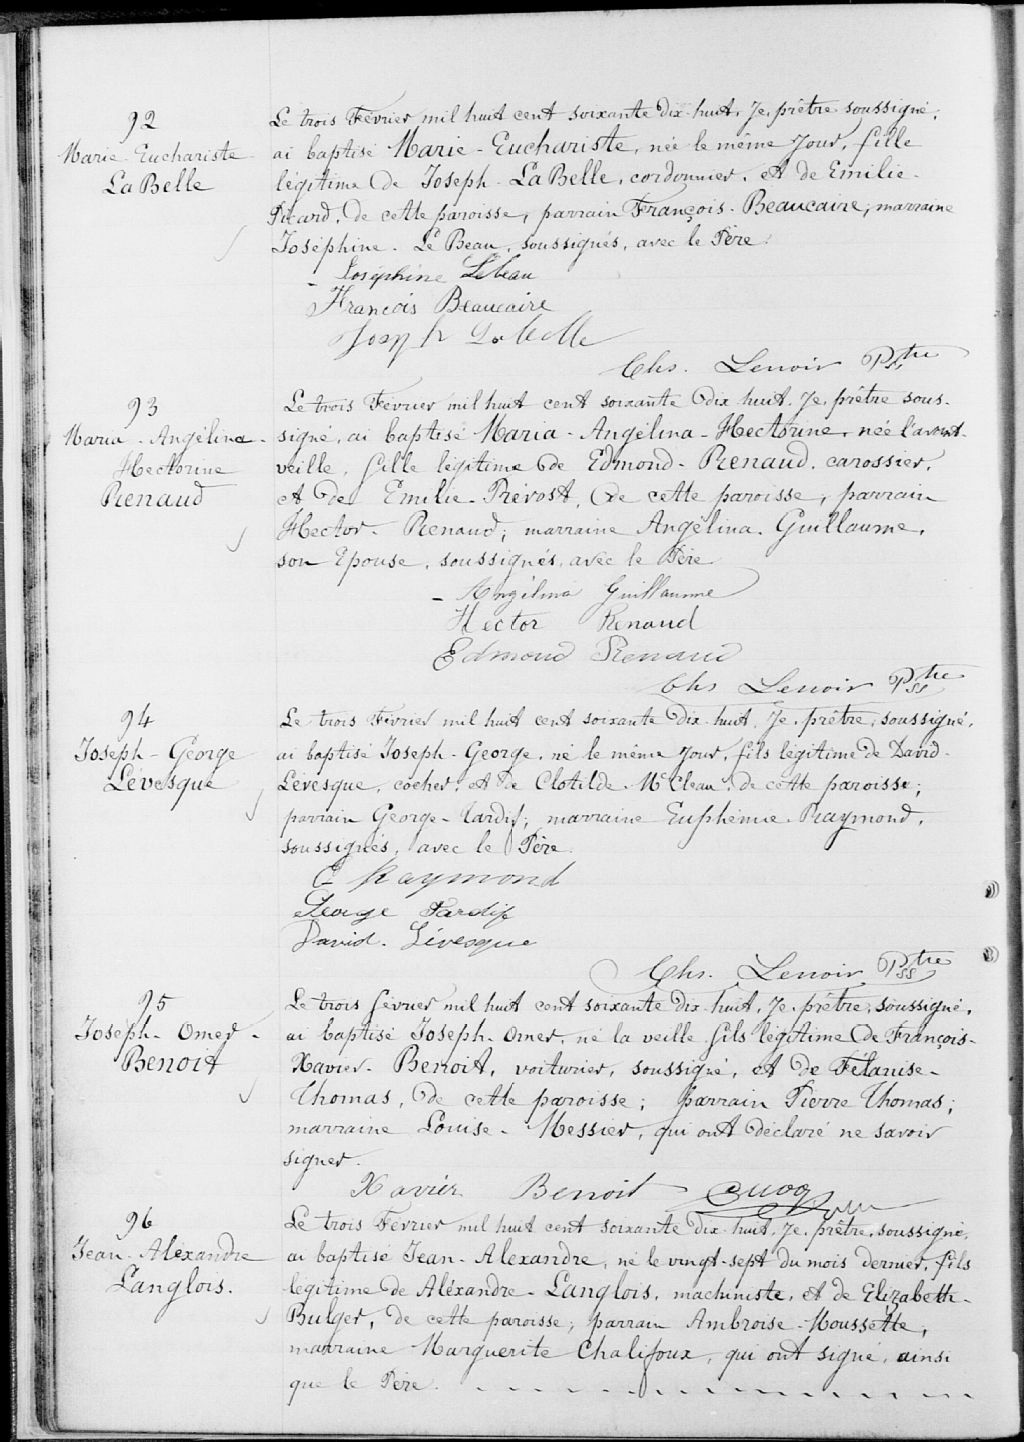 92
Marie-Euchariste
LaBelle
Le trois Février mil huit cent soixante dix-huit, Je, prêtre soussigné,
ai baptisé Marie-Euchariste, née le même Jour, fille
légitime de Joseph LaBelle, cordonnier, et de Emilie
Picard, de cette paroisse, parrain François Beaucaire; marraine
Joséphine Le Beau, soussignés, avec le Père.
Joséphine Lebeau
François Beaucaire
Joseph Labelle
Chs. Lenoir Ptre SS
93
Maria-Angélina-
Hectorine
Renaud
Le trois Février mil huit cent soixante Dix huit, Je, prêtre sous-
signé, ai baptisé Maria-Angélina-Hectorine, née l'avant-
veille, fille légitime de Edmond Renaud, carossier,
et de Emilie Prévost, de cette paroisse, parrain
Hector Renaud; marraine Angélina Guillaume,
son Epouse, soussignés, avec le Père
Angélina Guillaume
Hector Renaud
Edmond Renaud
Chs Lenoir Ptre SS
94
Joseph-George
Lévesque
Le trois Février mil huit cent soixante Dix-huit, Je, prêtre, soussigné,
ai baptisé Joseph-George, né le même Jour, fils légitime de David
Lévesque, cocher, et de Clotilde McClean, de cette paroisse;
parrain George Tardif; marraine Euphémie Raymond,
soussignés, avec le Père.
E Raymond
George Tardif
David Lévesque
Chs. Lenoir Ptre SS
95
Joseph-Omer-
Benoit
Le trois février mil huit cent soixante dix-huit, Je, prêtre, soussigné,
ai baptisé Joseph-Omer, né la veille fils légitime de François-
Xavier Benoit, voiturier, soussigné, et de Félanise
Thomas, de cette paroisse; parrain Pierre Thomas;
marraine Louise Messier, qui ont déclaré ne savoir
signer.
Xavier Benoit Cuoq
96
Jean-Alexandre
Langlois.
Le trois Février mil huit cent soixante dix-huit, Je, prêtre, soussigné,
ai baptisé Jean-Alexandre, né le vingt-sept du mois dernier, fils
légitime de Aléxandre Langlois, machiniste, et de Elizabeth
Bulger, de cette paroisse; parrain Ambroise Moussette,
marraine Marguerite Chalifoux, qui ont signé, ainsi
que le Père.